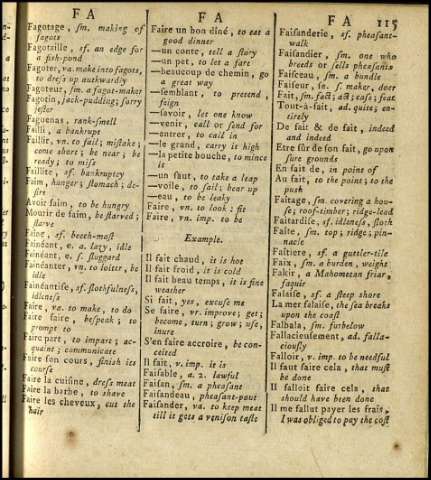 F A
Fagotage, sm. making of
fagots
Fagotaille, sf. an edge for
a fish-pond
Fagoter, va. make into fagots,
to dress up awkwardly
Fagoteur, sm. a fagot-maker
Fagotin, jack-pudding; sorry
jester
Faguenas, rank-smell
Failli, a bankrupt
Faillir, vn. to fail; mistake;
come short; be near; be
ready; to miss
Faillite, sf. bankruptcy
Faim, hunger; stomach; de-
sire
Avoir faim, to be hungry
Mourir de faim, be starved;
starve
Faîne, sf. beech-mast
Fainéant, e. a. lazy, idle
Fainéant, e. s. sluggard
Fainéanter, vn. to loiter, be
idle
Fainéantise, sf. slothfulness,
idleness
Faire, va. to make, to do
Faire faire, bespeak; to
prompt to
Faire part, to impart; ac-
quaint; communicate
Faire son cours, finish its
course
Faire la cuisine, dress meat
Faire la barbe, to shave
Faire les cheveux, cut the
hair
F A
Faire un bon dîné, to eat a
good dinner
—un conte, tell a story
—un pet, to let a fart
—beaucoup de chemin, go
a great way
—semblant, to pretend,
feign
—savoir, let one know
—venir, call or send for
—entrer, to call in
—le grand, carry is high
—la petite bouche, to mince
it
—un saut, to take a leap
—voile, to sail; bear up
—eau, to be leaky
Faire, vn. to look: fit
Faire, vn. imp. to be
Example.
Il fait chaud, it is hot
Il fait froid, it is cold
Il fait beau temps, it is fine
weather
Si fait, yes, excuse me
Se faire, vr. improve; get;
become, turn; grow; use,
inure
S'en faire accroire, be con-
ceited
Il fait, v. imp. it is
Faisable, a. 2. lawful
Faisan, sm. a pheasant
Faisandeau, pheasant-pout
Faisander, va. to keep meat
till it gets a venison taste
F A 115
Faisanderie, sf. pheasant-
walk
Faisandier, sm. one who
breeds or sells pheasants
Faisceau, sm. a bundle
Faiseur, sn. s. maker, doer
Fait, sm. fact; act; case; feat
Tout-à-fait, ad. quite; en-
tirely
De fait & de fait, indeed
and indeed
Etre sûr de son fait, go upon
sure grounds
En fait de, in point of
Au fait, to the point; to the
push
Faîtage, sm. covering a hou-
se; roof-timber; ridge-lead
Faitardise, sf. idleness, sloth
Faîte, sm. top; ridge; pin-
nacle
Faîtiere, sf. a gutter-tile
Faix, sm. a burden, weight
Fakir, a Mahometan friar,
faquir
Falaise, sf. a steep shore
La mer falaise, the sea breaks
upon the coast
Falbala, sm. furbelow
Fallacieusement, ad. falla-
ciously
Falloir, v. imp. to be needful
Il faut faire cela, that must
be done
Il falloit faire cela, that
should have been done
Il me fallut payer les frais,
I was obliged to pay the cost